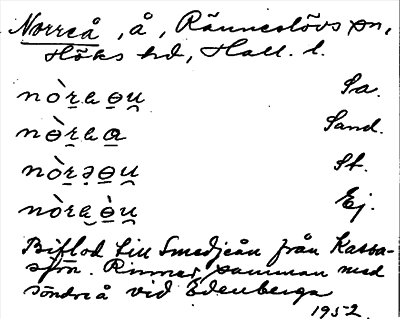 Norreå, å, Ränneslövs sn,
Höks hd, Hall. l.
nòr̲a o̲u̯ Sa.
nòr̲a a̲ Sand.
nòr̲ə o̲u̯ St.
nòr̲a ò̲u̯ Ej.
Biflod till Smedjeån från Kassa-
sjön. Rinner samman med
söndreå vid Edenberga
1952.